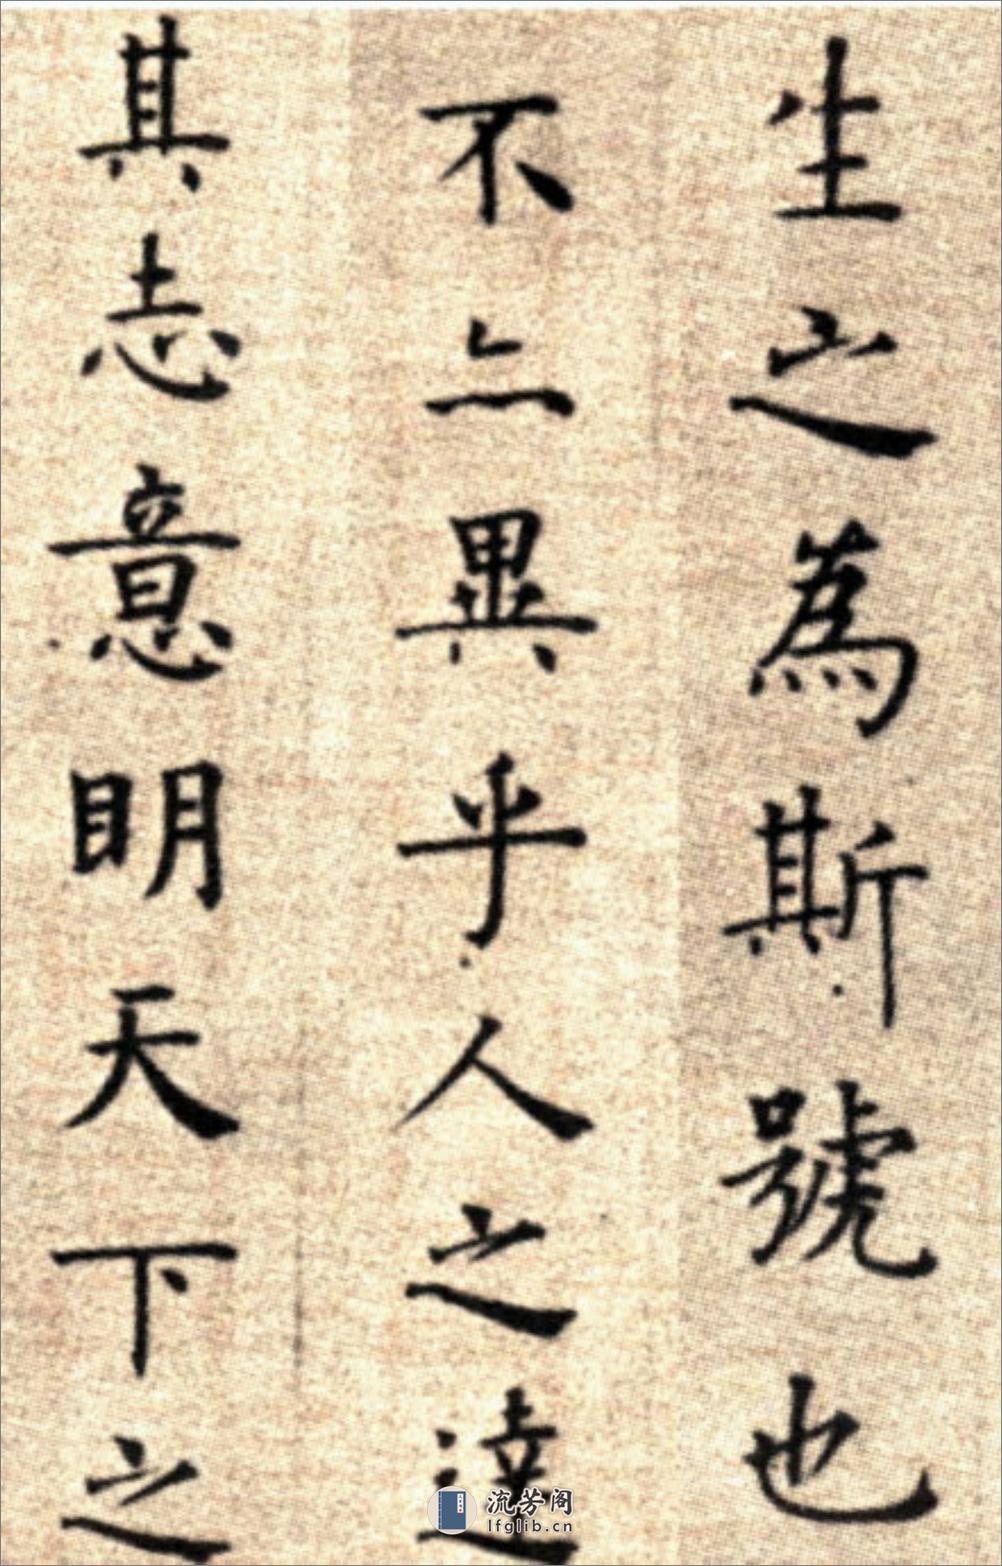 生之為斯號也
不亦異乎人之達
其志意明天下之
流芳阁
lfglib.cn